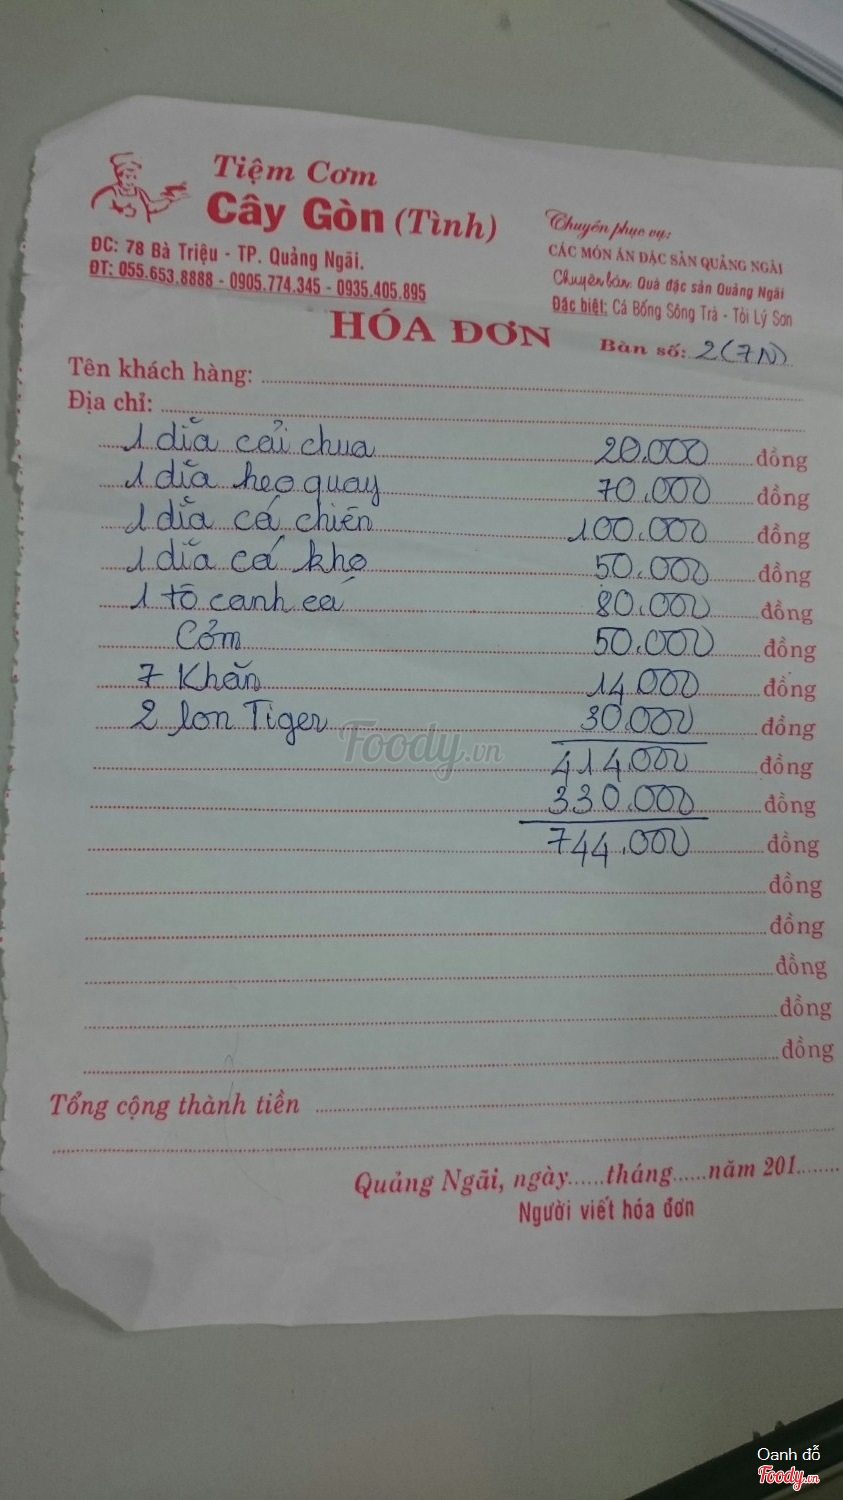 Tiệm Cơm
Cây Gòn (Tình)
ĐC: 78 Bà Triệu - TP. Quảng Ngãi.
ĐT: 055.653.8888 - 0905.774.345 - 0935.405.895
Chuyên phục vụ:
CÁC MÓN ĂN ĐẶC SẢN QUẢNG NGÃI
Chuyên bán: Quà đặc sản Quảng Ngãi
Đặc biệt: Cá Bống Sông Trà - Tỏi Lý Sơn
HÓA ĐƠN
Bàn số: 2 (7N)
Tên khách hàng:
Địa chỉ:
1 dĩa cải chua 20.000 đồng
1 dĩa heo quay 70.000 đồng
1 dĩa cá chiên 100.000 đồng
1 dĩa cá kho 50.000 đồng
1 tô canh cá 80.000 đồng
Cơm 50.000 đồng
7 Khăn 14.000 đồng
2 lon Tiger 30.000 đồng
414.000 đồng
330.000 đồng
744.000 đồng
đồng
đồng
đồng
đồng
đồng
Foody.vn
Tổng cộng thành tiền
Quảng Ngãi, ngày......tháng......năm 201........
Người viết hóa đơn
Oanh đỗ
Foody.vn